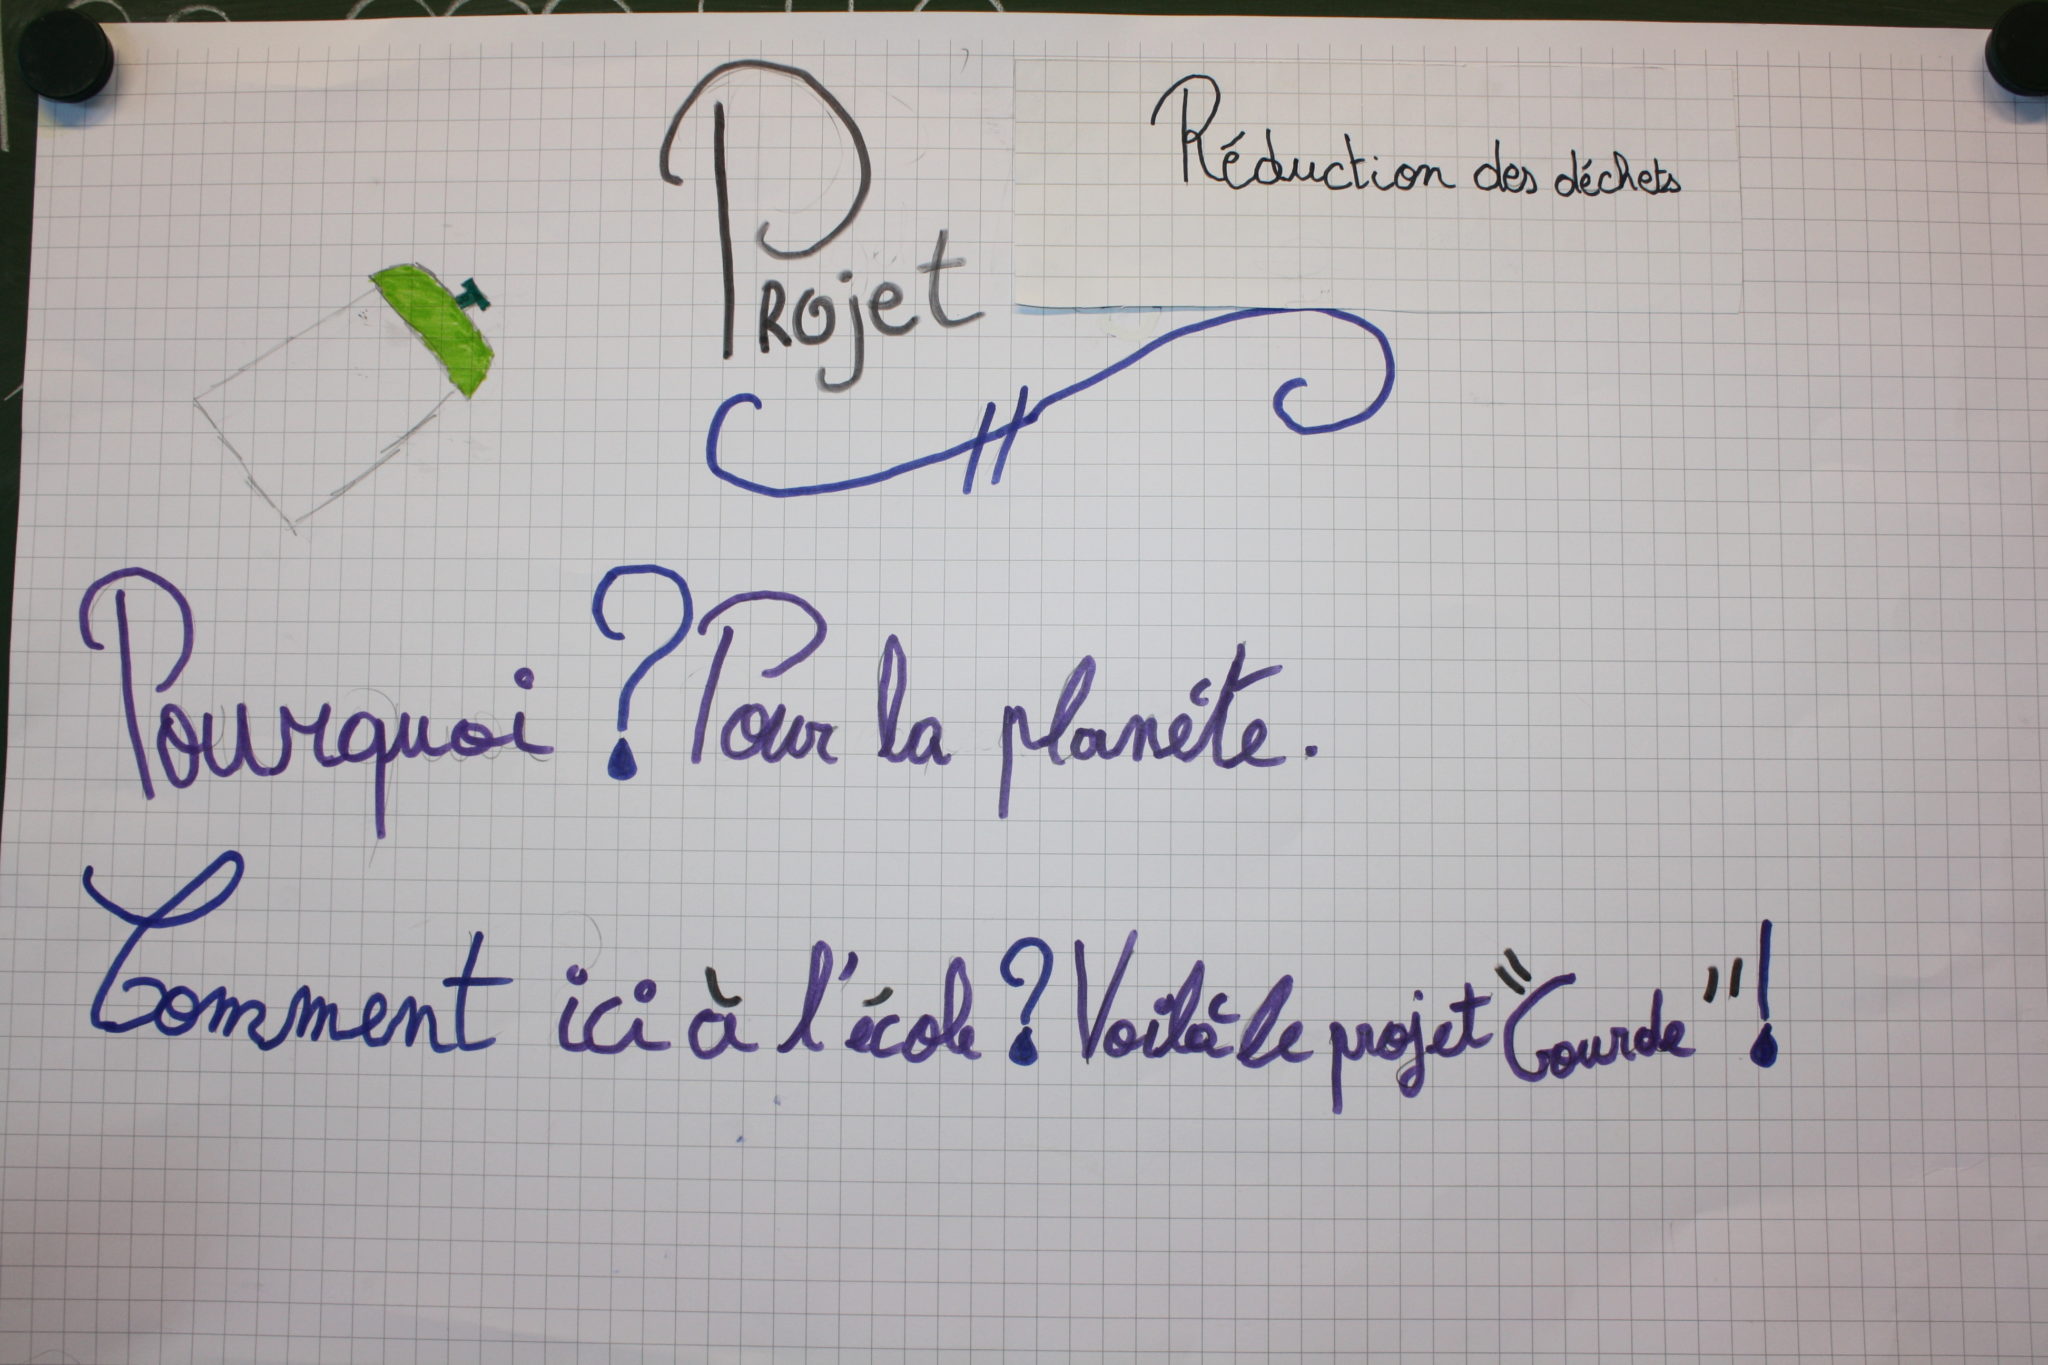 Projet Réduction des déchets
Pourquoi ? Pour la planète.
Comment ici à l'école ? Voilà le projet "Gourde" !